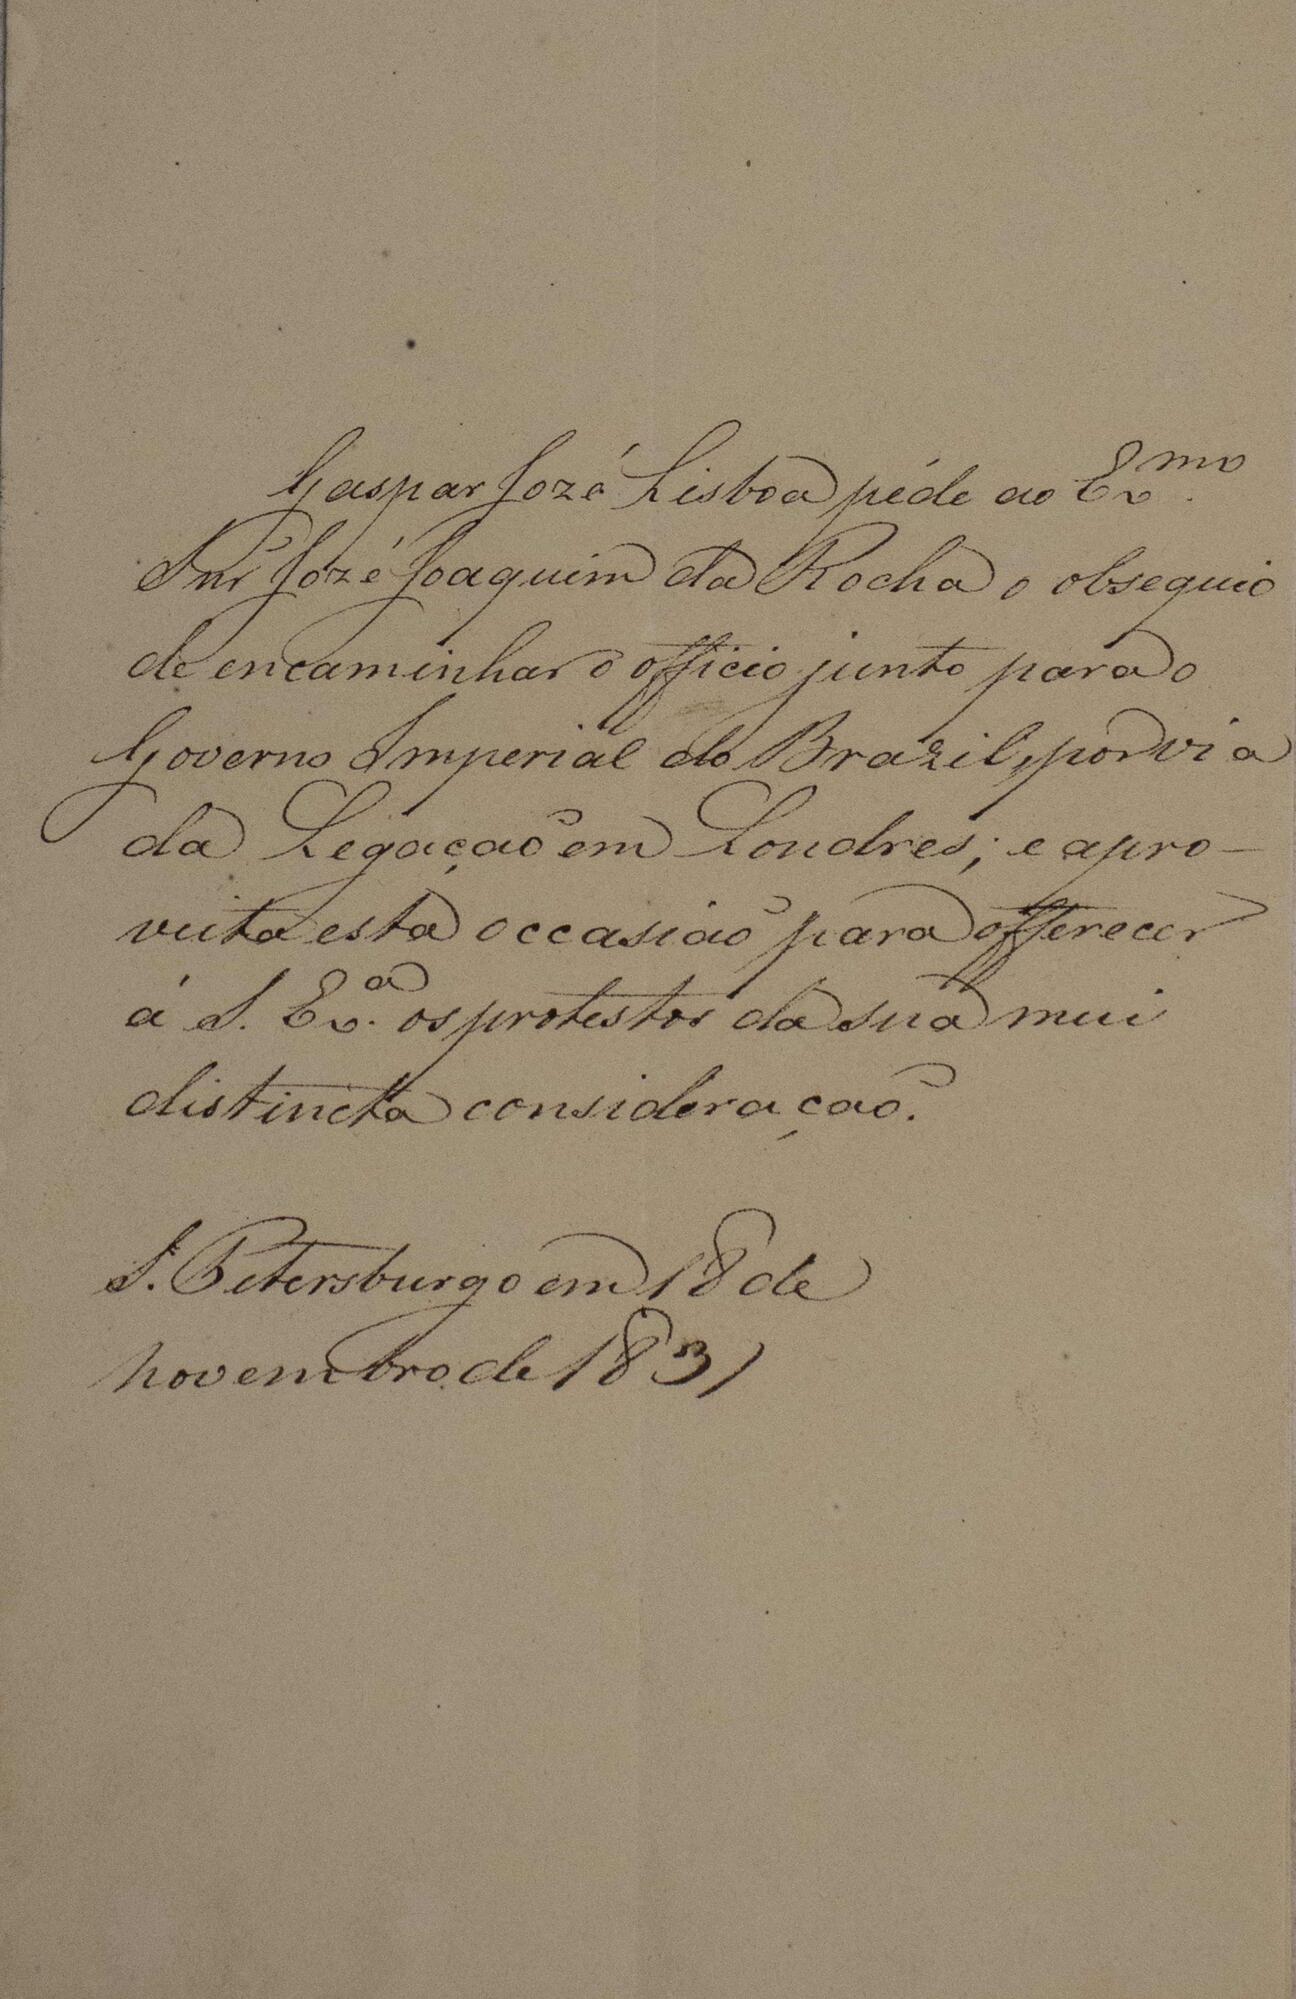 Gaspar Jozé Lisboa péde ao Ex.mo
Snr̃ Jozé Joaquim da Rocha o obsequio
de encaminhar o officio junto para o
Governo Imperial do Brazil, por via
da Legaçaõ em Londres; e apro-
veita esta occasiaõ para offerecer
á S. Ex.a os protestos da sua mui
distincta consideraçaõ.
S. Petersburgo em 18 de
novembro de 1831